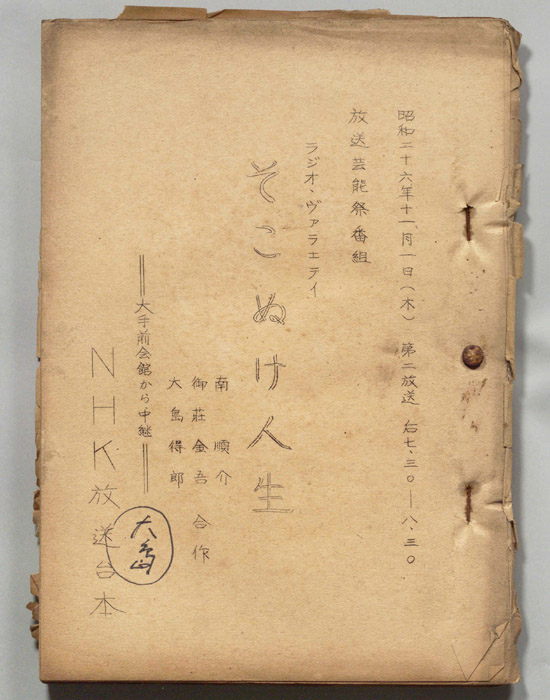 昭和二十六年十一月一日（木） 第二放送 后七.三〇―八.三〇
放送芸能祭番組
ラジオ・ヴァラエティ
そこぬけ人生
南 順介
御荘金吾 合作
大島得郎
大手前会館から中継
NHK放送台本
大島